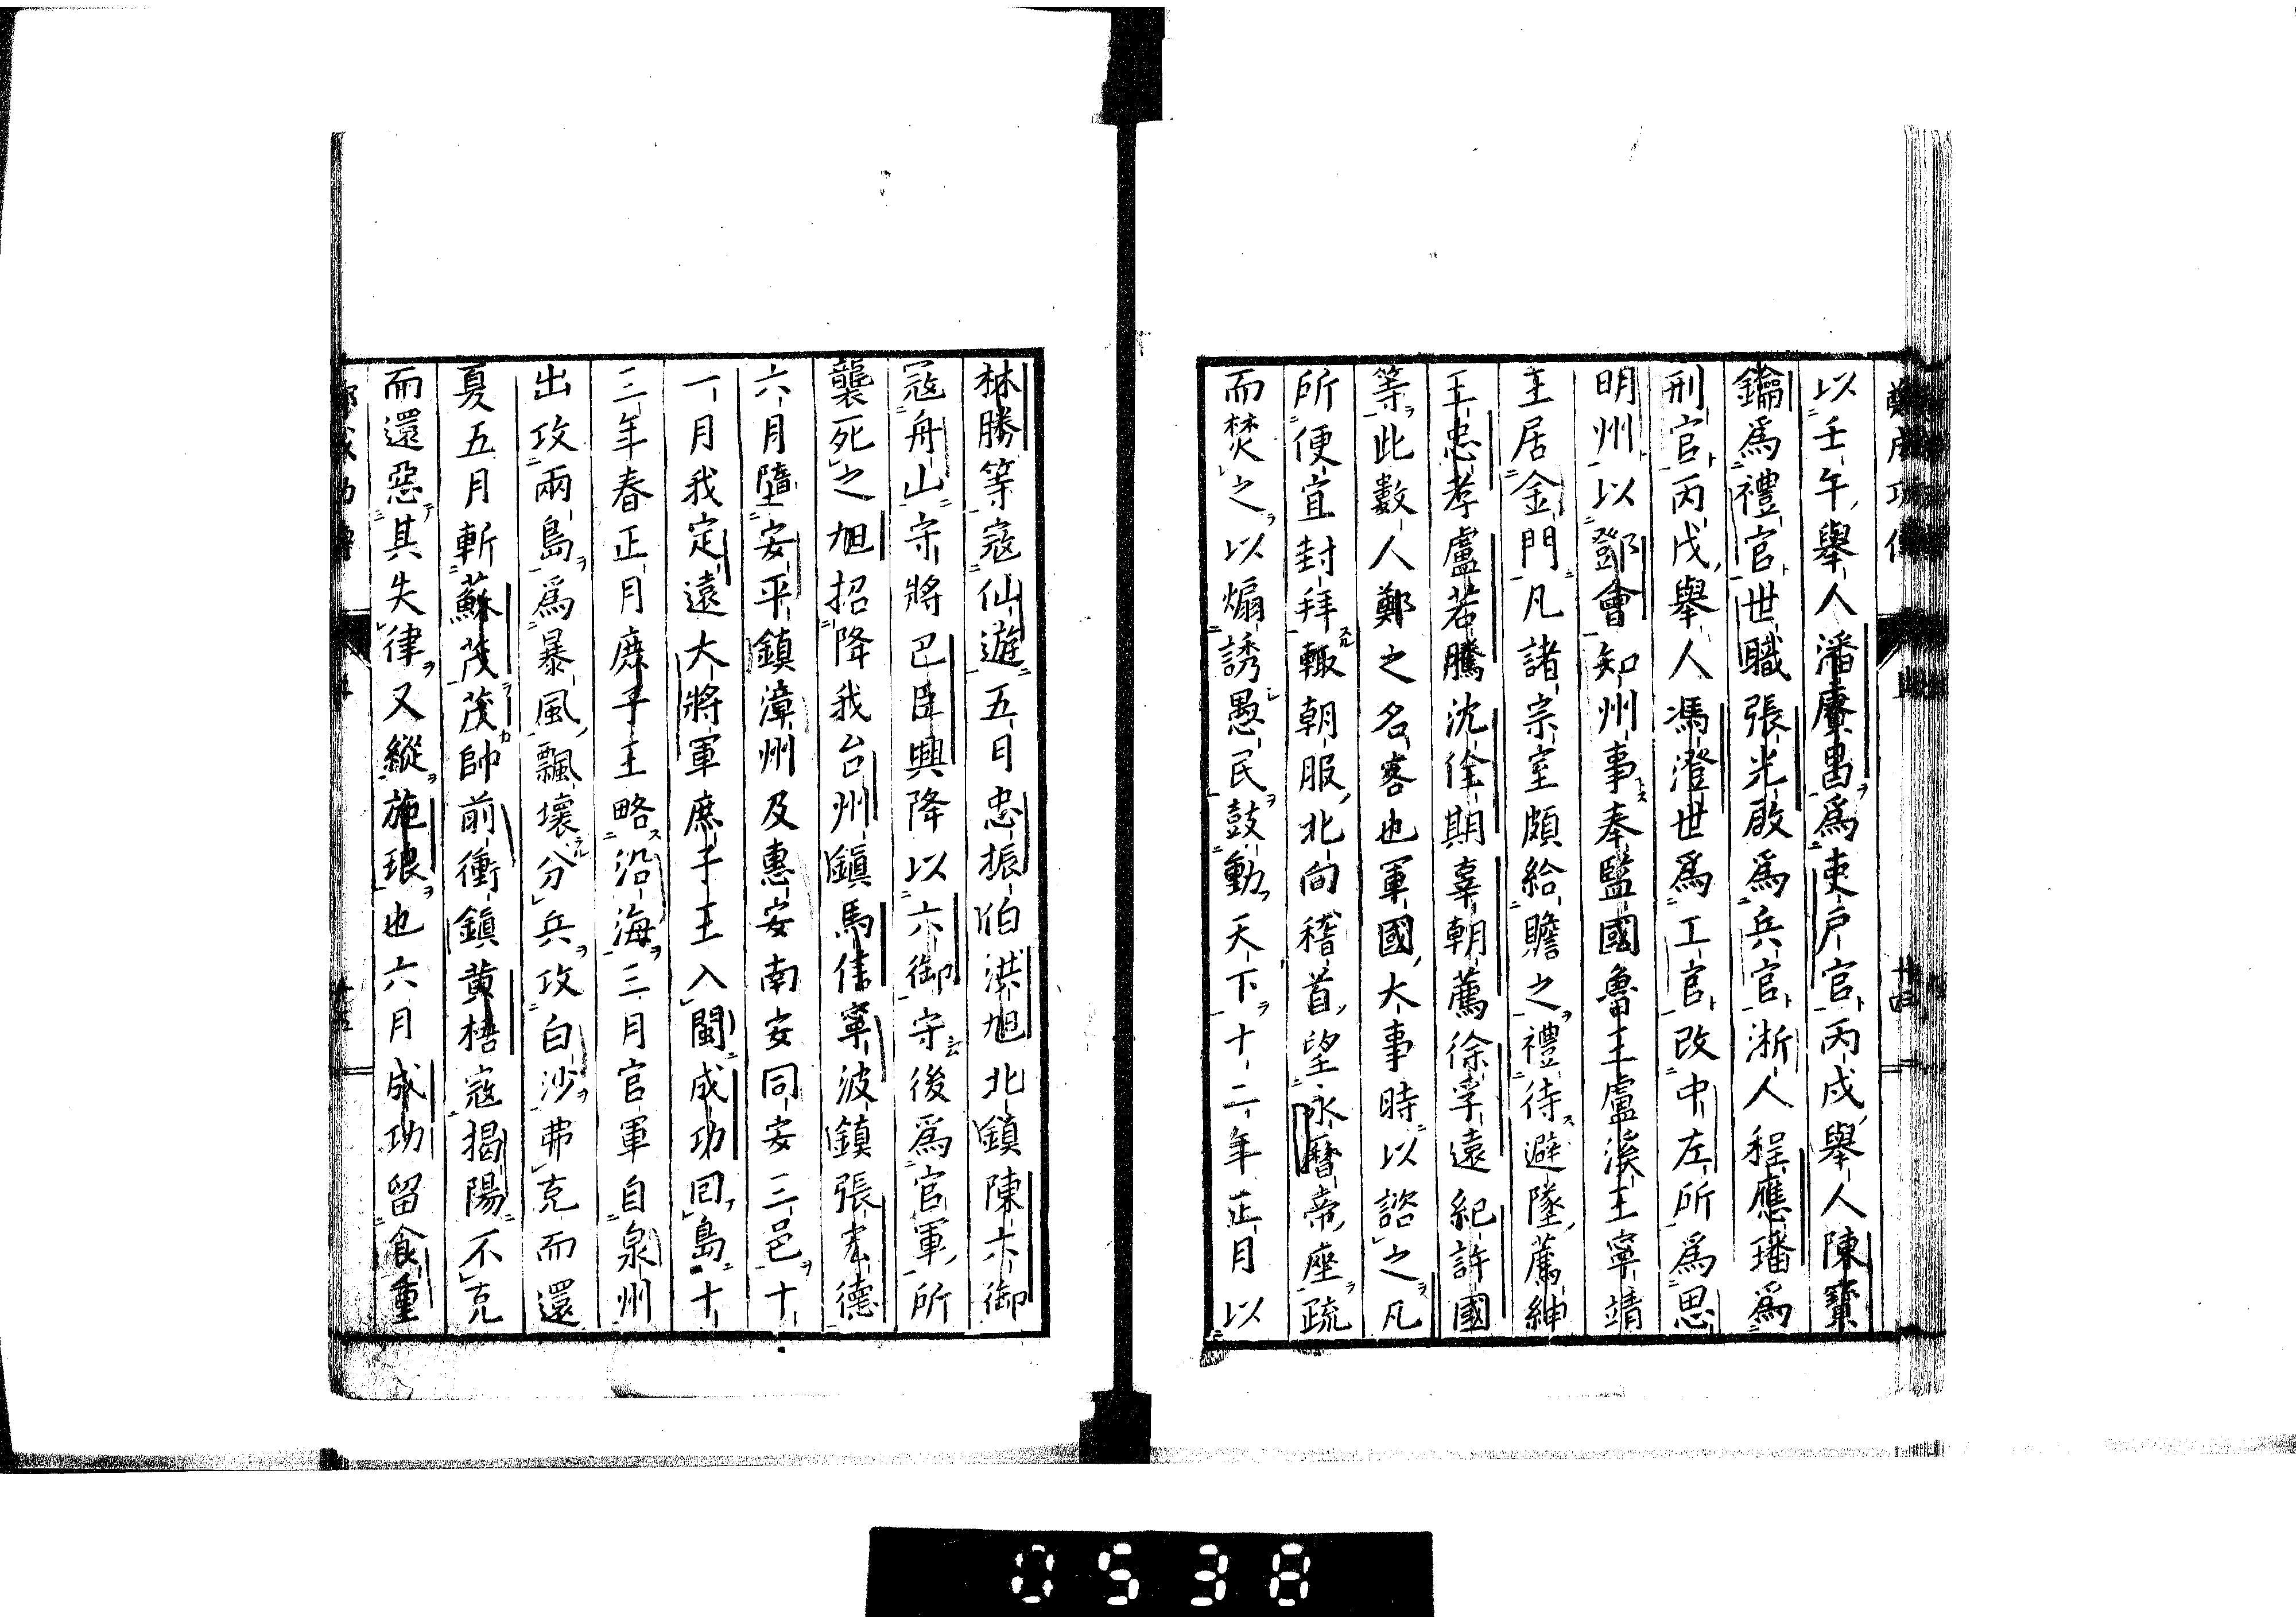 以壬午舉人潘賡昌爲吏戶官丙戌舉人陳寶
鑰爲禮官世職張光啟爲兵官浙人程應璠爲
刑官丙戌舉人馮澄世爲工官改中左所爲思
明州以鄧會知州事奉監國魯王盧溪王寧靖
王居金門凡諸宗室頗給贍之禮待避墜薦紳
王忠孝盧若騰沈佺期辜朝薦徐孚遠紀許國
等此數人鄭之名客也軍國大事時以諮之凡
所便宜封拜輙朝服北向稽首望永曆帝座疏
而焚之以煽誘愚民鼓動天下十二年正月以
林勝等寇仙遊五日忠振伯洪旭北鎮陳六御
寇舟山守將巴臣興降以六御守後爲官軍所
襲死之旭招降我台州鎮馬信寧波鎮張宏德
六月墮安平鎮漳州及惠安南安同安三邑十
一月我定遠大將軍庶子王入閩成功回島十
三年春正月庶子王略沿海三月官軍自泉州
出攻兩島爲暴風飄壞分兵攻白沙弗克而還
夏五月斬蘇茂茂帥前衝鎮黃梧寇揭陽不克
而還惡其失律又縱施琅也六月成功留食重
0538